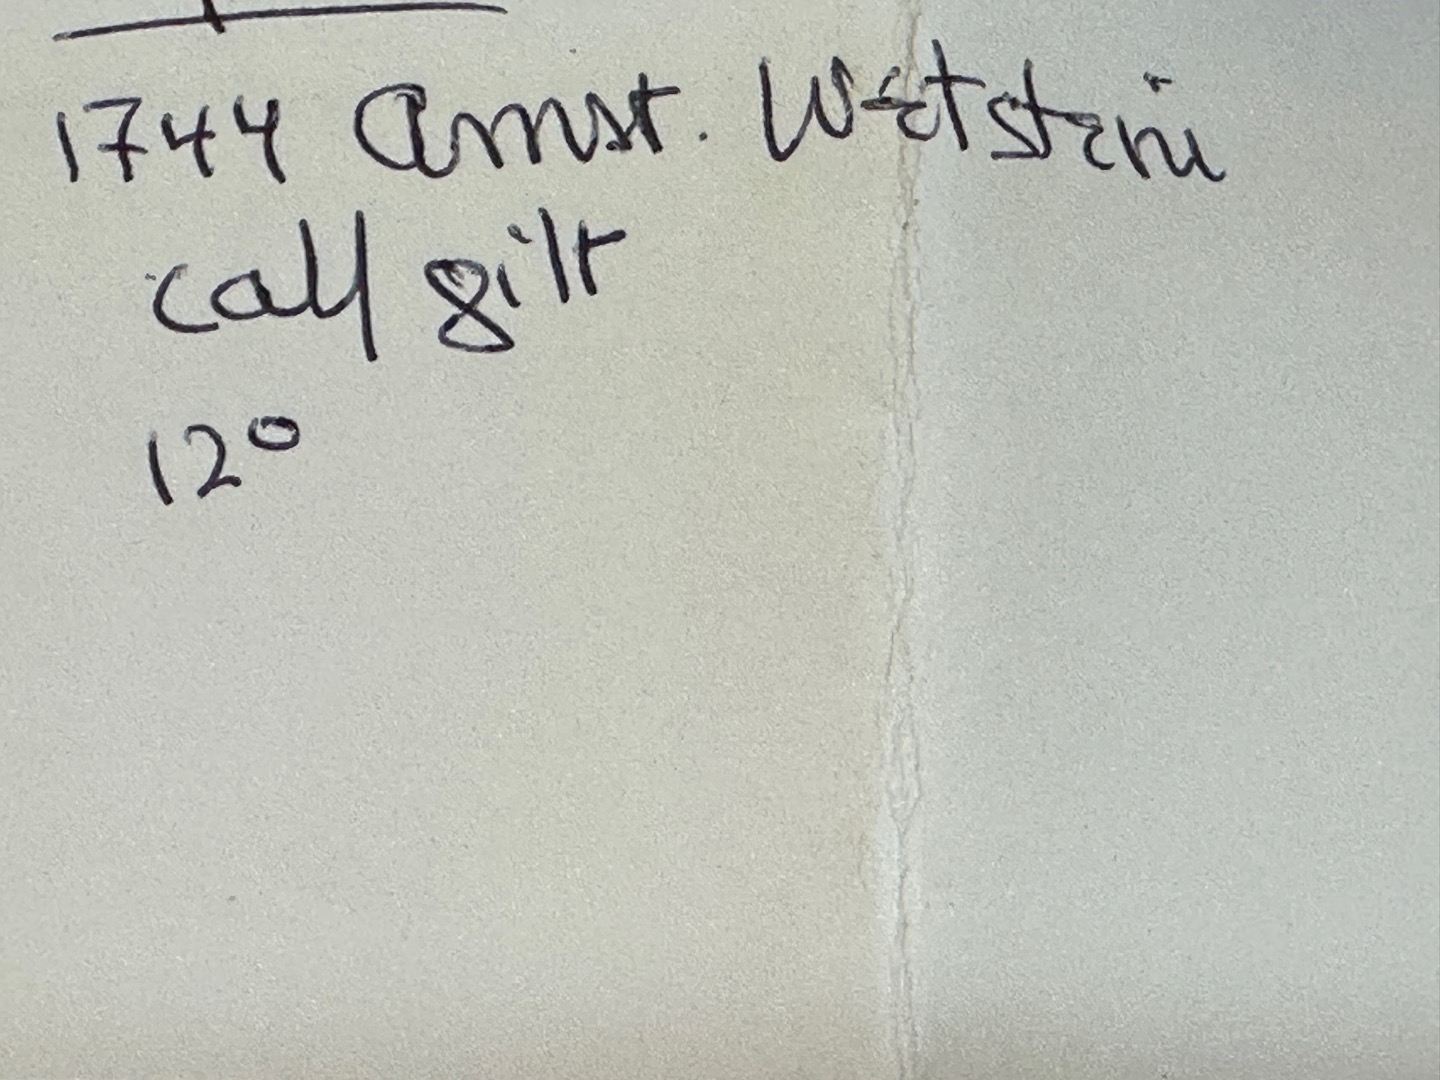 1744 Amst. Wetstein
calf gilt
12°